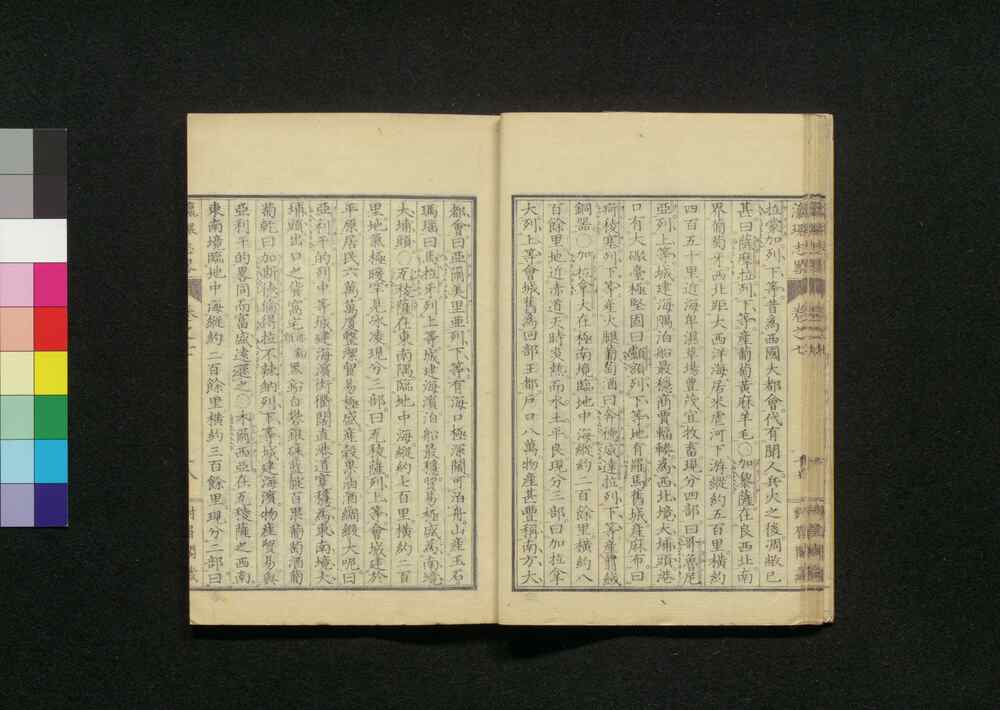 瀛環志畧
卷之七
拉蒙加列下等昔為西國大都會代有聞人兵火之後凋敝已
甚曰薩摩拉列下等產葡萄黃麻羊毛〇加黎薩在艮西北南
界葡萄牙西北距大西洋海居米虐河下游縱約五百里橫約
四百五十里近海卑濕草場豊茂宜牧畜現分四部曰哥魯尼
亞列上等城建海隅泊船最穩商賈輻輳為西北境大埔頭港
口有大礮臺極堅固曰盧額列下等地有羅馬舊城產麻布曰
疴稜塞列下等產火腿葡萄酒曰奔德威達拉列下等產剪絨
銅器〇加拉拿大在極南境臨地中海縱約二百餘里橫約八
百餘里地近赤道天時炎熱而水土平良現分三部曰加拉拿
大列上等會城舊為回部王都戶口八萬物產甚豊稱南方大
都會曰亞爾美里亞列下等有海口極深闊可泊舟山產玉石
瑪瑙曰馬拉牙列上等城建海濱泊船最穩貿易極盛為南境
大埔頭〇瓦稜薩在東南隅臨地中海縱約七百里橫約二百
里地氣極暖罕見冰凌現分三部曰瓦稜薩列上等會城建於
平原居民六萬萬廈整潔貿易極盛產穀果油酒綢緞大呢曰
亞利平的列中等城建海濱街衢闊直港道穩為東南境大
埔頭出口之貨窩宅那 百果葡萄酒葡
萄乾曰加斯德倫得拉不辣納列下等城建海濱物產貿易與
亞利平的畧同而富盛遠遜之〇木爾西亞在瓦稜薩之西南
東南境臨地中海縱約二百餘里橫約三百餘里現分二部曰